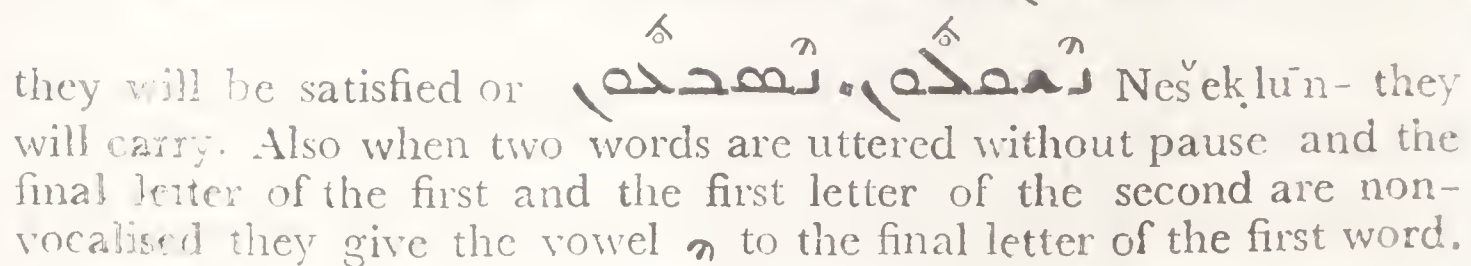 they will be satisfied or ܢܶܫܩܠܽܘܢ. ܢܶܣܒܠܽܘܢ Nes̆ ek̩ lūn- they
will carry. Also when two words are uttered without pause and the
final letter of the first and the first letter of the second are non-
vocalised they give the vowel ܶ to the final letter of the first word.